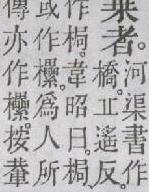 乘者。河渠書作
橋。丘遙反。
梮。韋昭曰。梮
或作欙。為人所
傳亦作欙。